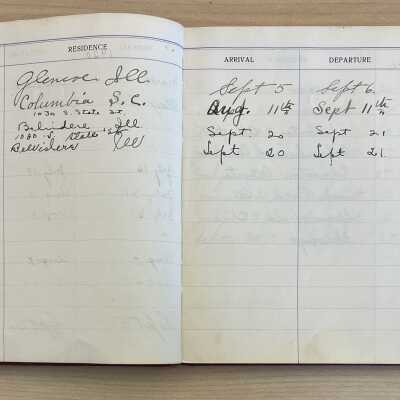 RESIDENCE ARRIVAL DEPARTURE
Glencoe Ill. Sept 5 Sept 6.
Columbia S.C. Aug. 11th Sept 11th
1030 S. State St.
Belvidere Ill. Sept 20 Sept 21
1030 S. State St
Belvidere Ill Sept 20 Sept 21.